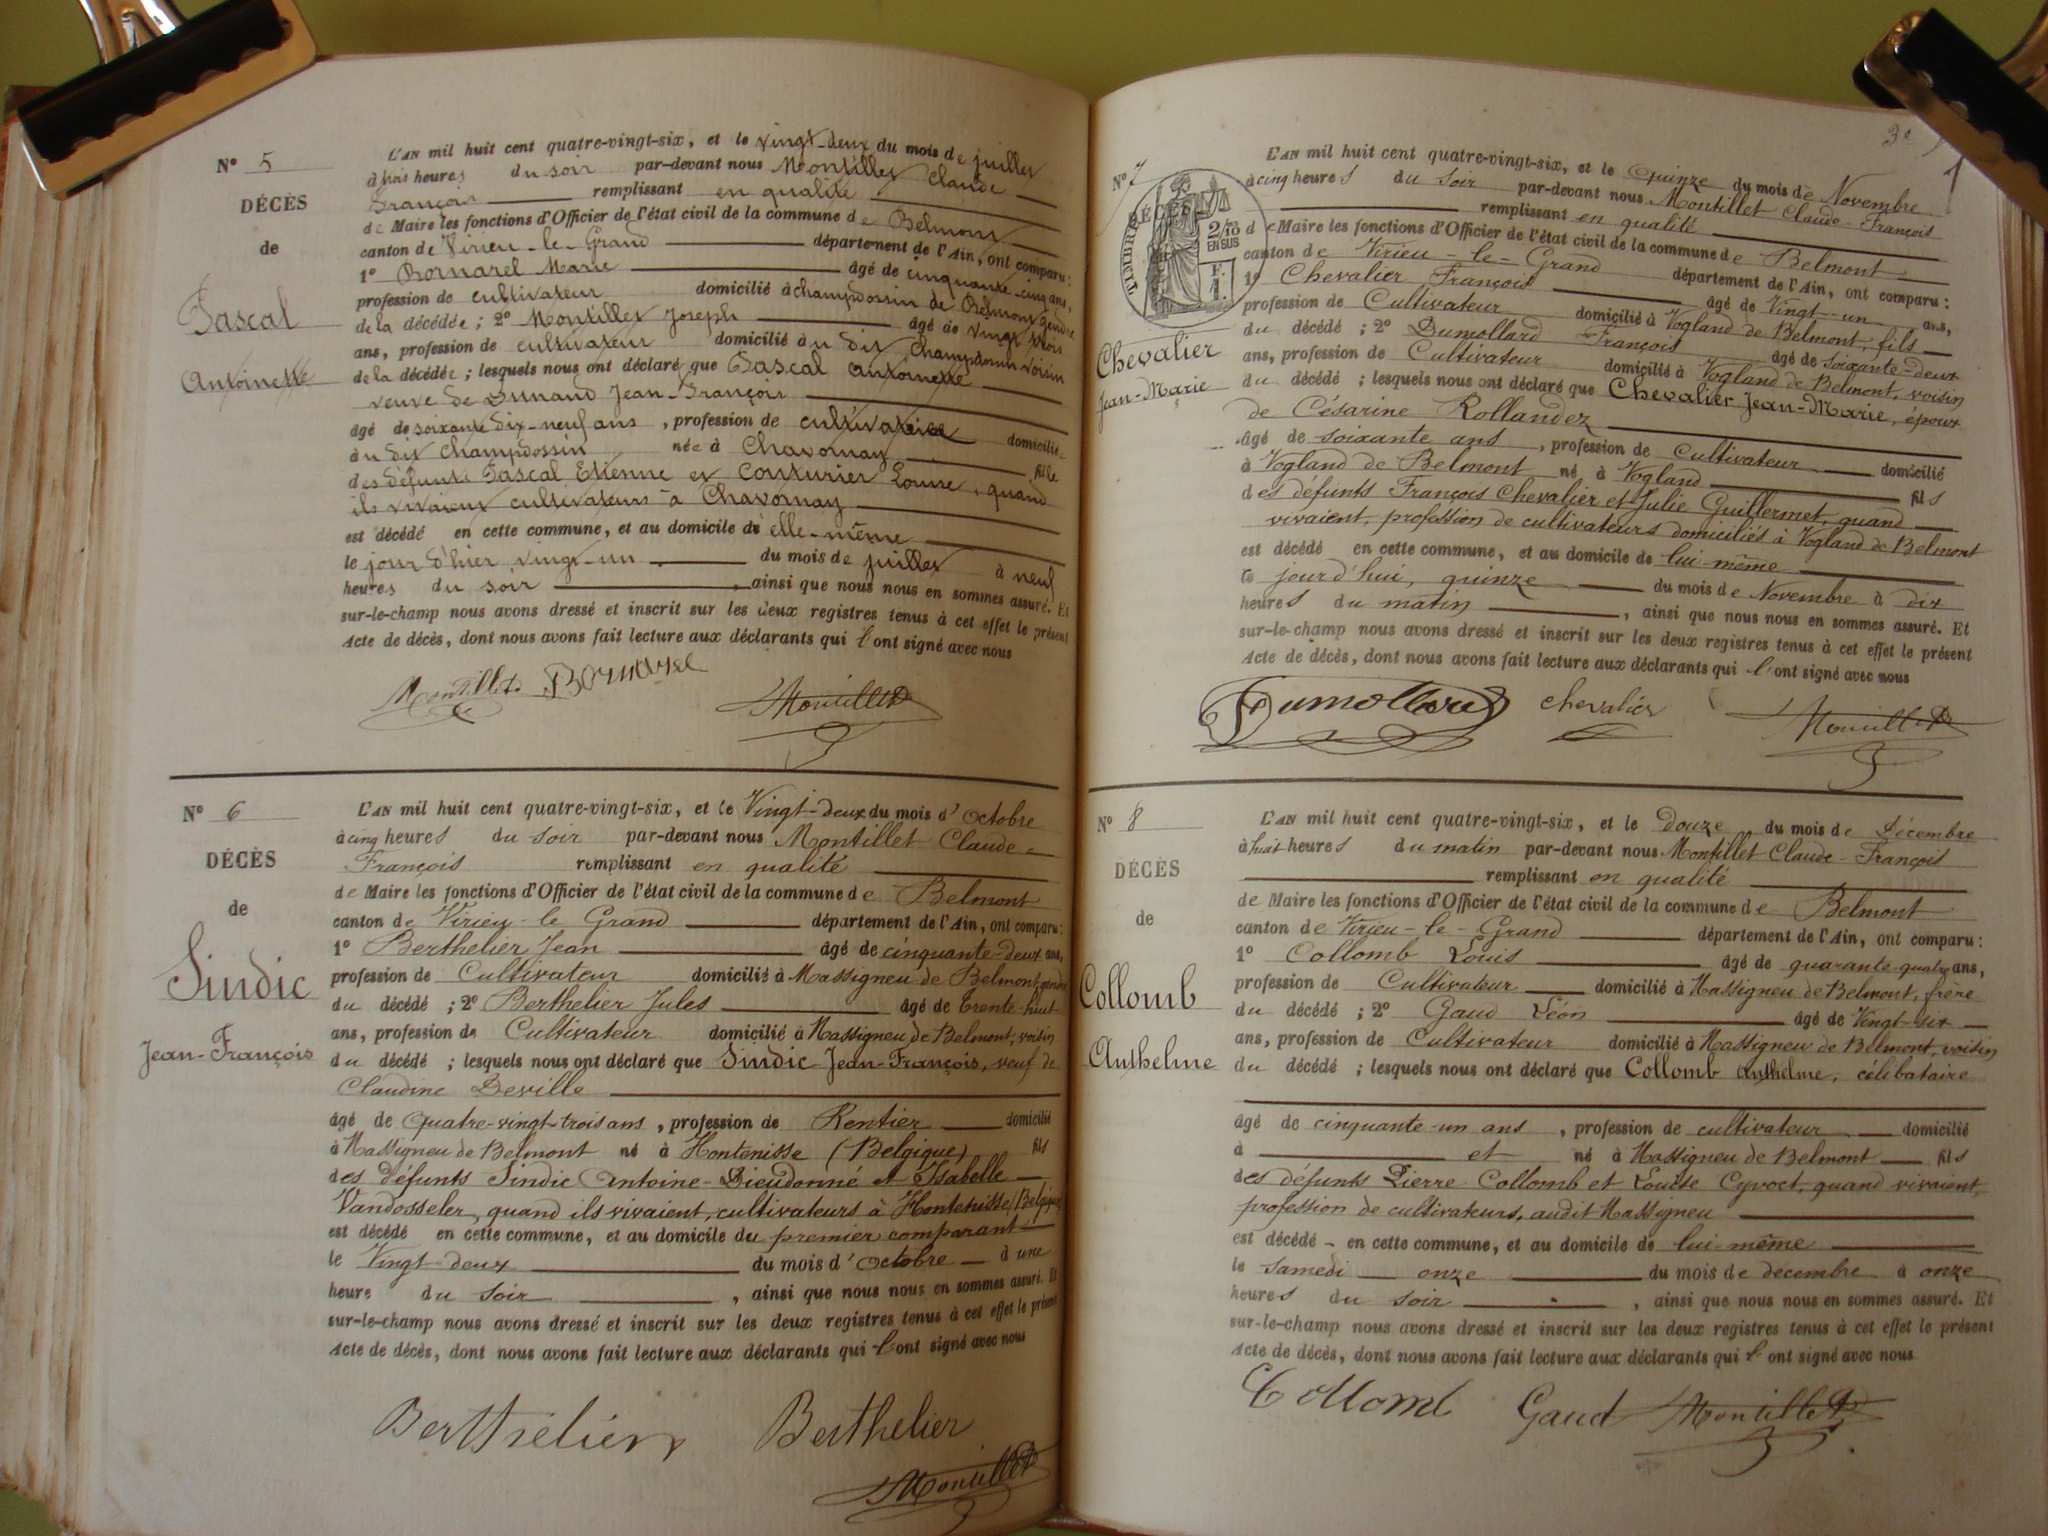 N° 5
DÉCÈS
de
Pascal
Antoinette
L'AN mil huit cent quatre-vingt-six, et le vingt-deux du mois de juillet
à trois heures du soir par-devant nous Montillet Claude
François remplissant en qualité
de Maire les fonctions d'Officier de l'état civil de la commune de Belmont
canton de Virieu-le-Grand département de l'Ain, ont comparu :
1° Bornarel Marie âgé de cinquante-cinq ans,
profession de cultivateur domicilié à champdossin de Belmont gendre
de la décédée ; 2° Montillet Joseph âgé de vingt trois
ans, profession de cultivateur domicilié au dit Champdossin voisin
de la décédée ; lesquels nous ont déclaré que Pascal Antoinette
veuve de Dunand Jean-François
âgé de soixante dix-neuf ans, profession de cultivatrice domicilié
au dit Champdossin née à Chavornay fille
des défunts Pascal Etienne et Couturier Louise, quand
ils vivaient cultivateurs à Chavornay
est décédé en cette commune, et au domicile de elle-même
le jour d'hier vingt-un du mois de juillet à neuf
heures du soir, ainsi que nous nous en sommes assuré. Et
sur-le-champ nous avons dressé et inscrit sur les deux registres tenus à cet effet le présent
Acte de décès, dont nous avons fait lecture aux déclarants qui l'ont signé avec nous
Montillet Bornarel
Montillet
N° 6
DÉCÈS
de
Sindic
Jean-François
L'AN mil huit cent quatre-vingt-six, et le Vingt-deux du mois d'Octobre
à cinq heures du soir par-devant nous Montillet Claude-
François remplissant en qualité
de Maire les fonctions d'Officier de l'état civil de la commune de Belmont
canton de Virieu-le Grand département de l'Ain, ont comparu :
1° Berthelier Jean âgé de cinquante-deux ans,
profession de Cultivateur domicilié à Massigneu de Belmont, gendre
du décédé ; 2° Berthelier Jules âgé de Trente-huit
ans, profession de Cultivateur domicilié à Massigneu de Belmont, voisin
du décédé ; lesquels nous ont déclaré que Sindic Jean-François, veuf de
Claudine Deville
âgé de Quatre-vingt-trois ans, profession de Rentier domicilié
à Massigneu de Belmont né à Hontenisse (Belgique) fils
des défunts Sindic Antoine-Dieudonné et Isabelle
Vandosseler, quand ils vivaient, cultivateurs à Hontenisse (Belgique)
est décédé en cette commune, et au domicile du premier comparant
le Vingt-deux du mois d'Octobre à une
heure du soir, ainsi que nous nous en sommes assuré. Et
sur-le-champ nous avons dressé et inscrit sur les deux registres tenus à cet effet le présent
Acte de décès, dont nous avons fait lecture aux déclarants qui l'ont signé avec nous
Berthelier Berthelier
Montillet
3e
N° 7
TIMBRE DÉCÈS
2/10
EN SUS
F.
1.
Chevalier
Jean-Marie
L'AN mil huit cent quatre-vingt-six, et le Quinze du mois de Novembre
à cinq heures du soir par-devant nous Montillet Claude-François
remplissant en qualité
de Maire les fonctions d'Officier de l'état civil de la commune de Belmont
canton de Virieu-le-Grand département de l'Ain, ont comparu :
1° Chevalier François âgé de Vingt-un ans,
profession de Cultivateur domicilié à Vogland de Belmont, fils
du décédé ; 2° Dumollard François âgé de soixante-deux
ans, profession de Cultivateur domicilié à Vogland de Belmont, voisin
du décédé ; lesquels nous ont déclaré que Chevalier Jean-Marie, époux
de Césarine Rollandez
âgé de soixante ans, profession de Cultivateur domicilié
à Vogland de Belmont né à Vogland fils
des défunts François Chevalier et Julie Guillermet, quand
vivaient, profession de cultivateurs domiciliés à Vogland de Belmont
est décédé en cette commune, et au domicile de lui-même
le jourd'hui, quinze du mois de Novembre à dix
heures du matin, ainsi que nous nous en sommes assuré. Et
sur-le-champ nous avons dressé et inscrit sur les deux registres tenus à cet effet le présent
Acte de décès, dont nous avons fait lecture aux déclarants qui l'ont signé avec nous
Dumollard chevalier Montillet
N° 8
DÉCÈS
de
Collomb
Anthelme
L'AN mil huit cent quatre-vingt-six, et le Douze du mois de Décembre
à huit heures du matin par-devant nous Montillet Claude-François
remplissant en qualité
de Maire les fonctions d'Officier de l'état civil de la commune de Belmont
canton de Virieu-le-Grand département de l'Ain, ont comparu :
1° Collomb Louis âgé de quarante-quatre ans,
profession de Cultivateur domicilié à Massigneu de Belmont, frère
du décédé ; 2° Gaud Léon âgé de Vingt-six
ans, profession de Cultivateur domicilié à Massigneu de Belmont, voisin
du décédé ; lesquels nous ont déclaré que Collomb Anthelme, célibataire
âgé de cinquante-un ans, profession de cultivateur domicilié
à et né à Massigneu de Belmont fils
des défunts Pierre Collomb et Louise Cyvoct, quand vivaient,
profession de cultivateurs, audit Massigneu
est décédé en cette commune, et au domicile de lui-même
le samedi onze du mois de decembre à onze
heures du soir, ainsi que nous nous en sommes assuré. Et
sur-le-champ nous avons dressé et inscrit sur les deux registres tenus à cet effet le présent
Acte de décès, dont nous avons fait lecture aux déclarants qui l'ont signé avec nous
Collomb Gaud Montillet